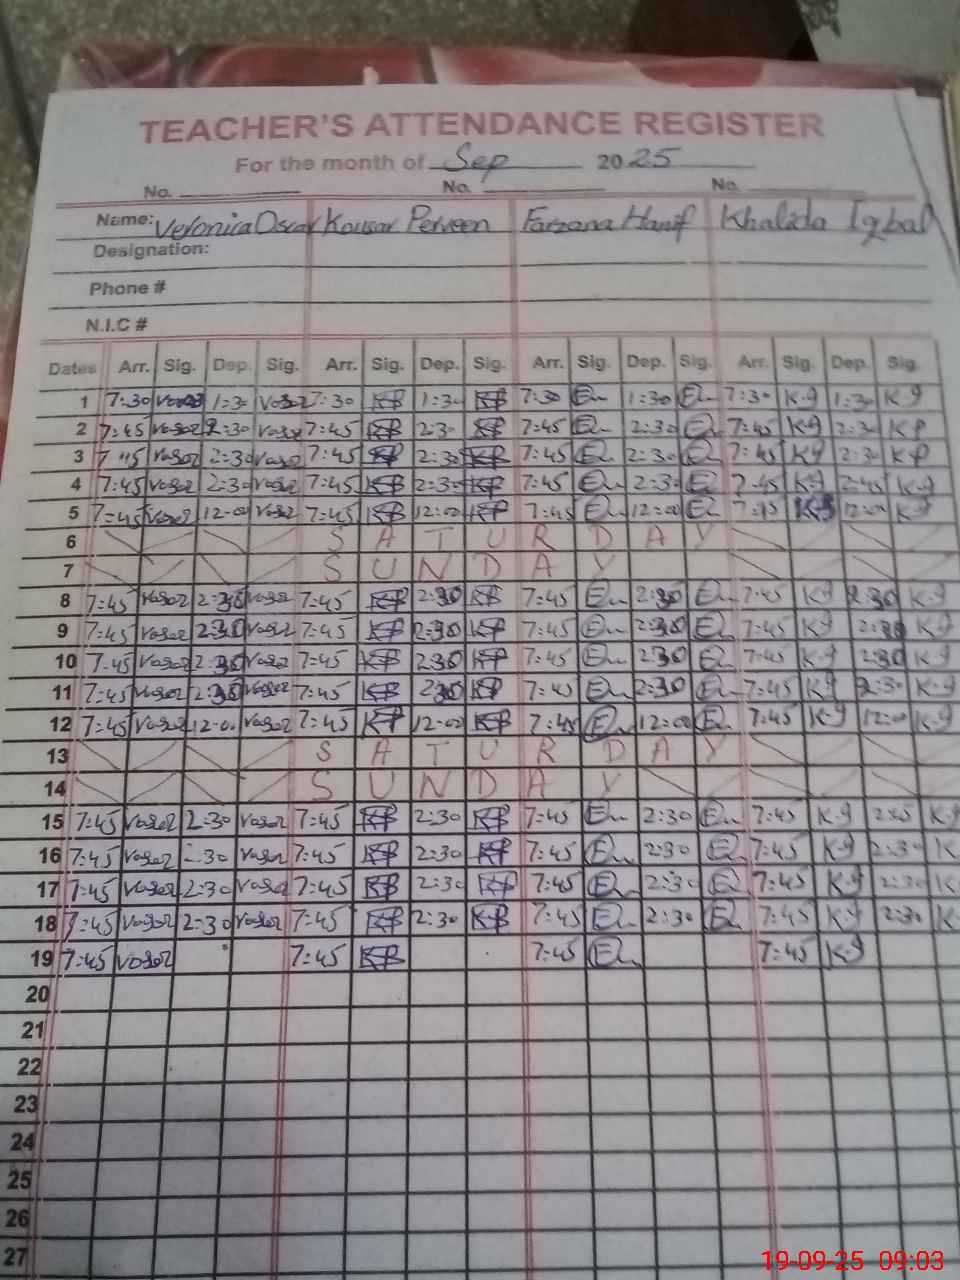 TEACHER'S ATTENDANCE REGISTER
For the month of Sep 2025
No. No. No.
Name: Veronica Oscar Kousar Perveen Farzana Hanif Khalida Iqbal
Designation:
Phone #
N.I.C #
Dates Arr. Sig. Dep. Sig. Arr. Sig. Dep. Sig. Arr. Sig. Dep. Sig. Arr. Sig. Dep. Sig.
1 7:30 1:30 7:30 KP 1:30 KP 7:30 1:30 7:30 K-9 1:30 K-9
2 7:45 2:30 7:45 KP 2:30 KP 7:45 2:30 7:45 K9 2:30
3 2:30 7:45 KP 2:30 KP 7:45 2:30 7:45 K9 2:30
4 7:45 2:30 7:45 KP 2:30 KP 7:45 2:30 7:45 K-9 2:45 K-9
5 7=45 12-00 7:45 KP 12:00 KP 7:45 12:00 7:45 K-9 12:00 K-9
6 SATURDAY
7 SUNDAY
8 7=45 2:30 7:45 KP 2:30 KP 7:45 2:30 7:45 K-9 2:30 K-9
9 7=45 2:30 7:45 KP 2:30 KP 7:45 2:30 7:45 K-9 2:30 K-9
10 7:45 2:30 7=45 KP 2:30 KP 7:45 2:30 7:45 K-9 2:30 K-9
11 7=45 2:30 7:45 KP 2:30 KP 7:45 2:30 7:45 K-9 2:30 K-9
12 7=45 12-00 7:45 KP 12-00 KP 7:45 12:00 7:45 K-9 12:00 K-9
13 SATURDAY
14 SUNDAY
15 7:45 2:30 7:45 KP 2:30 KP 7:45 2:30 7:45 K-9 2:45 K-9
16 7:45 7:45 KP 2:30 KP 7:45 2:30 7:45 K-9 2:30 K
17 7:45 2:30 7:45 KP 2:30 KP 7:45 2:30 7:45 K-9 2:30 K
18 7:45 2:30 7:45 KP 2:30 KP 7:45 2:30 7:45 K-9 2:30 K
19 7:45 7:45 KP 7:45 7:45 K-9
20
21
22
23
24
25
26
27
19-09-25 09:03